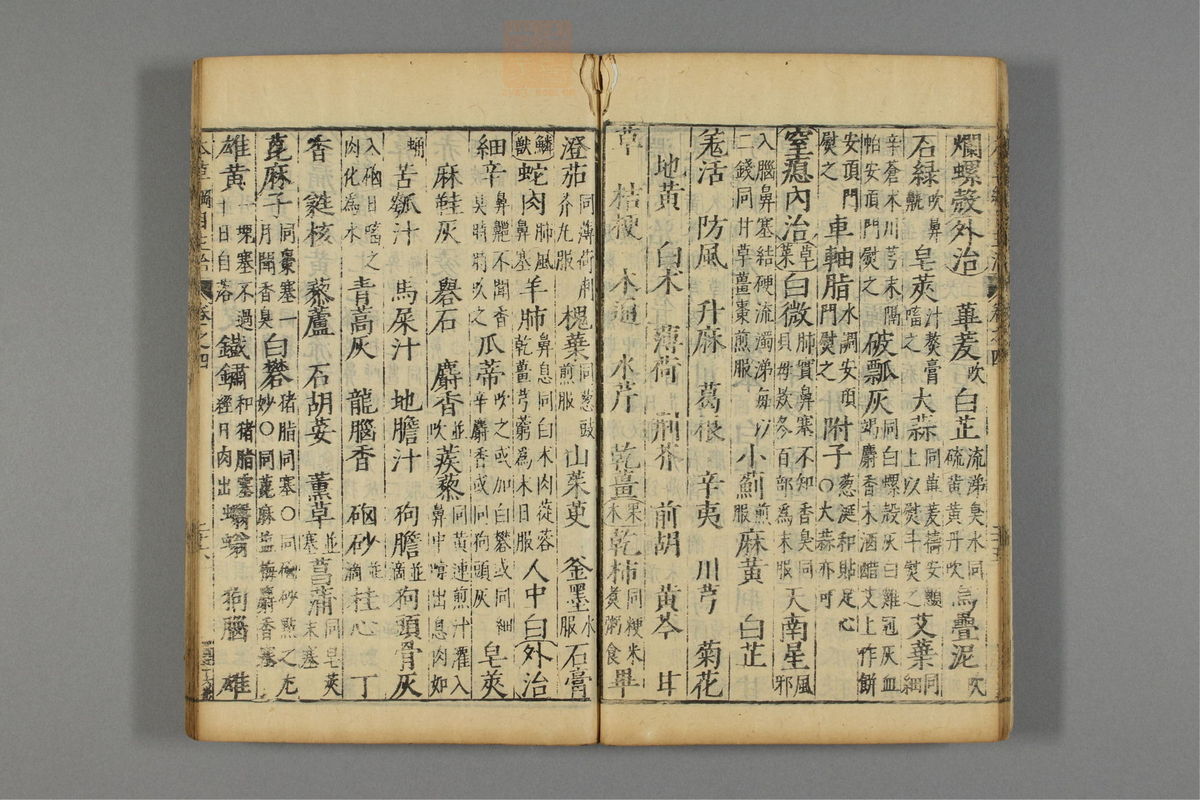 爛螺殼外治 蓽茇吹 白芷流涕臭水同硫黃黃丹吹 烏疊泥吹
石綠吹鼻 皂莢汁熬膏㗜之 大蒜同蓽茇擣安頂上以熨斗熨之 艾葉同細
辛蒼朮川芎末隔帕安頂門熨之 破瓢灰同白螺殼灰白雞冠灰血竭麝香末酒醋艾上作餅
安頂門熨之 車軸脂水調安頂門熨之 附子葱涎和貼足心〇大蒜亦可
窒瘜內治 草菜 白微肺實鼻塞不知香臭同貝母款冬百部為末服 天南星風邪
入腦鼻塞結硬流濁涕每以二錢同甘草薑棗煎服 小薊煎服 麻黃 白芷
羗活 防風 升麻 葛根 辛夷 川芎 菊花
地黃 白朮 薄荷 荊芥 前胡 黃芩 甘
草 桔梗 木通 水芹 乾薑 果木 乾柿同粳米煮粥食 蓽
澄茄同薄荷荊芥丸服 槐葉同葱豉煎服 山茱萸 釜墨水服 石膏
鱗獸 蛇肉肺風鼻塞 羊肺鼻息同白朮肉蓯蓉乾薑芎藭為末日服 人中白 外治
細辛鼻齆不聞香臭時時吹之 瓜蒂吹之或加白礬或同細辛麝香或同狗頭灰 皂莢
麻鞋灰 礜石 麝香並吹 蒺藜同黃連煎汁灌入鼻中嚏出息肉如
蛹 苦瓠汁 馬屎汁 地膽汁 狗膽並滴 狗頭骨灰
入硇日㗜之肉化為水 青蒿灰 龍腦香 硇砂並滴 桂心 丁
香 蕤核 藜蘆 石胡荽 薰草並塞 菖蒲同皂莢末塞
蓖麻子同棗塞一月聞香臭 白礬猪脂同塞〇同硇砂點之尤妙〇同蓖麻鹽梅麝香塞
雄黃一塊塞不過十日自落 鐵鏽和猪脂塞經月肉出 蝟腦 狗腦 雄